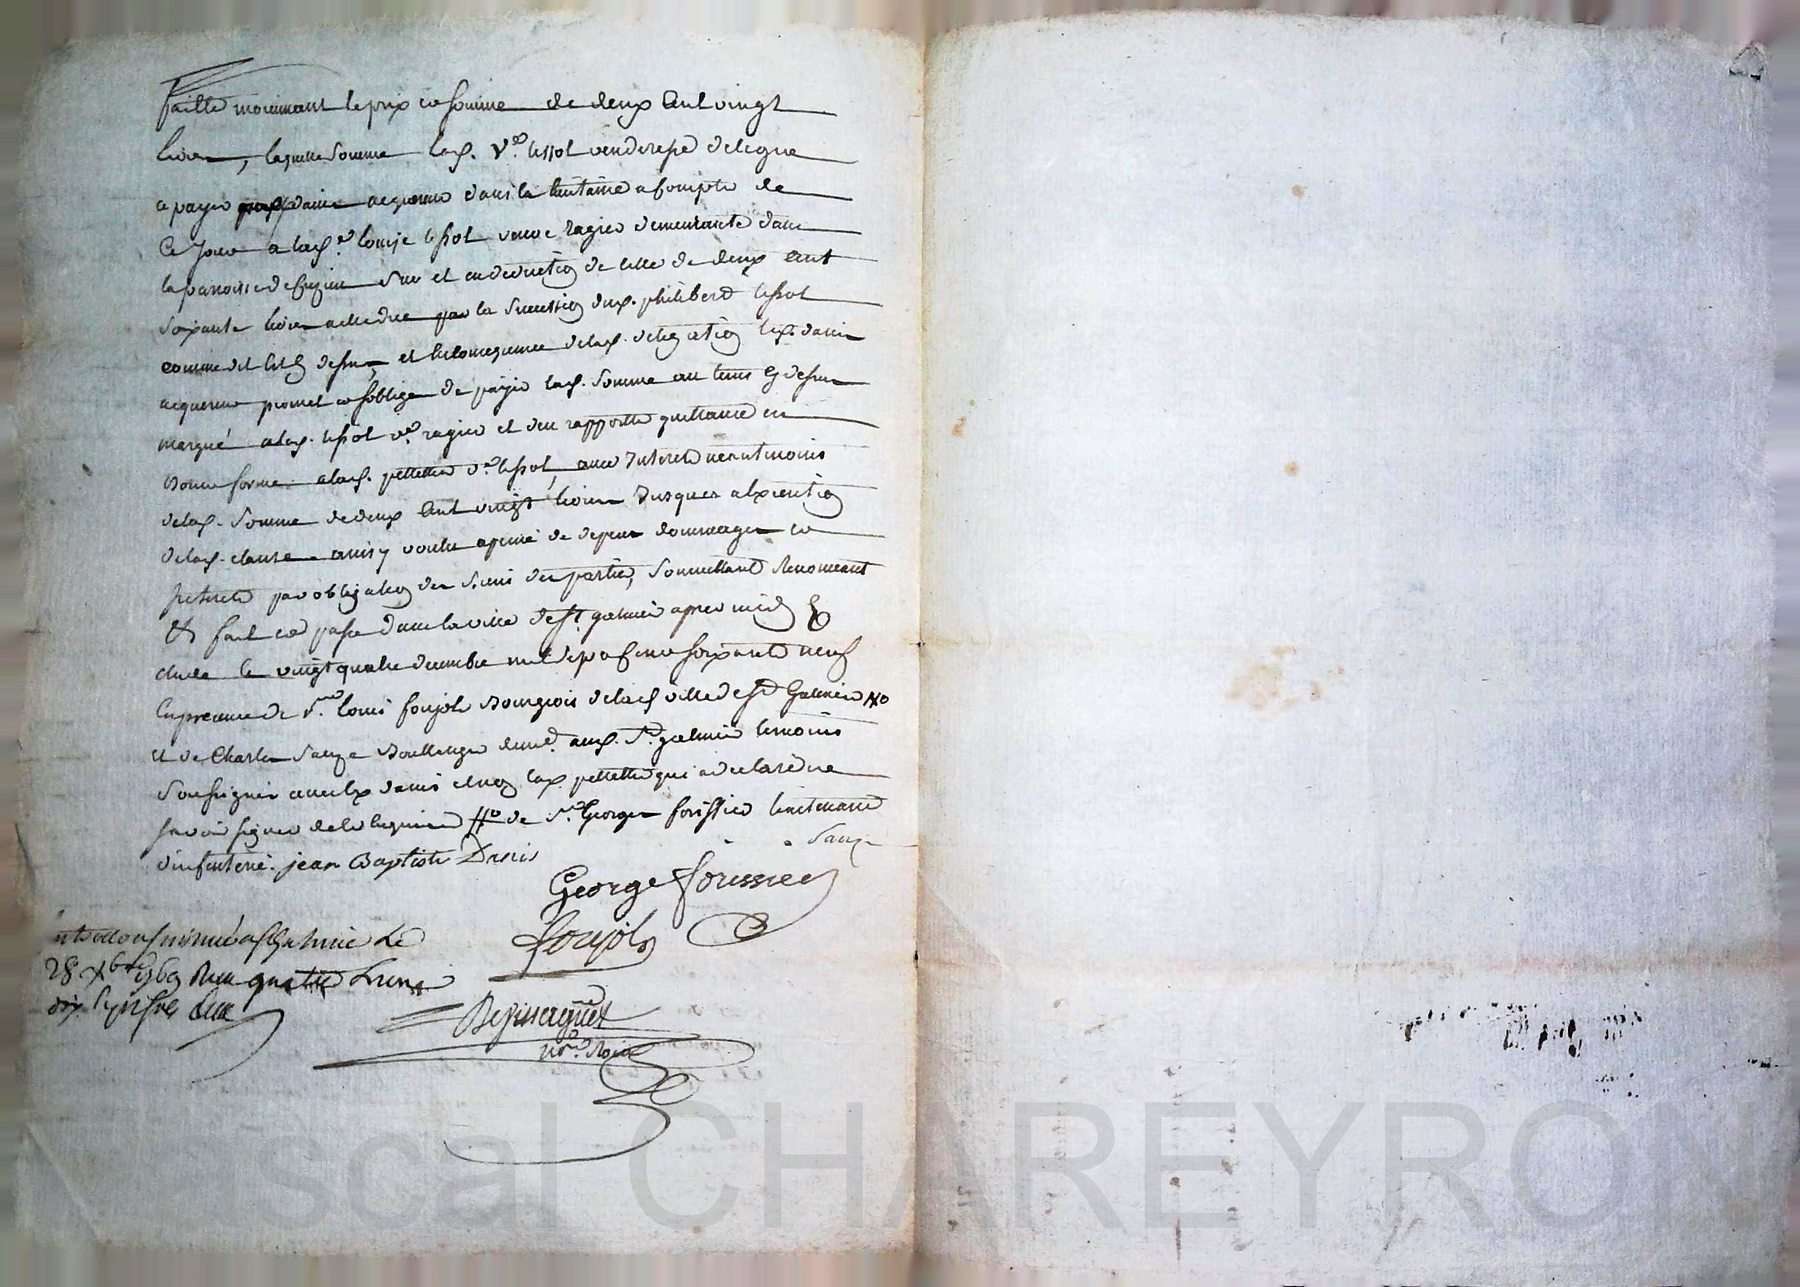 faitte moiennant le prix et somme de deux cent vingt
livres, laquelle somme lad. Ve. lessol venderesse delegue
a payer Danis acquereur dans la huitaine a compter de
ce jour a lad. e louise lessol veuve ragier demeurante dans
la paroisse de et en deduction de celle de deux cent
soixante livres a elle due par la succession dud. philiberd lessol
comme dit est cy dessus, et en consequence de lad. delegation led. danis
acquereur promet et soblige de payer lad. somme au tems cy dessus
marqué a lad. lessol ve. ragier et den rapporter quittance en
bonne forme a lad. pelletier ve. lessol, avec interets neantmoins
de lad. somme de deux cent vingt livres jusques a lexecution
de lad. clause ainsy voulu a peine de depens dommages et
interets par obligation des biens des parties, soumettant Renonceant
& fait et passé dans la ville de St. galmier apres midy
le vingt quatre decembre mil sept cent soixante neuf
En presence de Sr. louis foujols Bourgeois de lad. ville de St Galmier
et de Charles Sauze Boullanger demt. aud. St. galmier temoins
soussignés avec led. danis et non lad. pelletier qui a declaré ne
savoir signer de ce requise de Sr. George forissier lieutenant
d'infanterie. jean Baptiste Danis
Sauze
George forissier
foujols
controllé a St Galmier le
28 Xbre 1769 Reçu quatre livres
dix
not. Roial
Pascal CHAREYRON